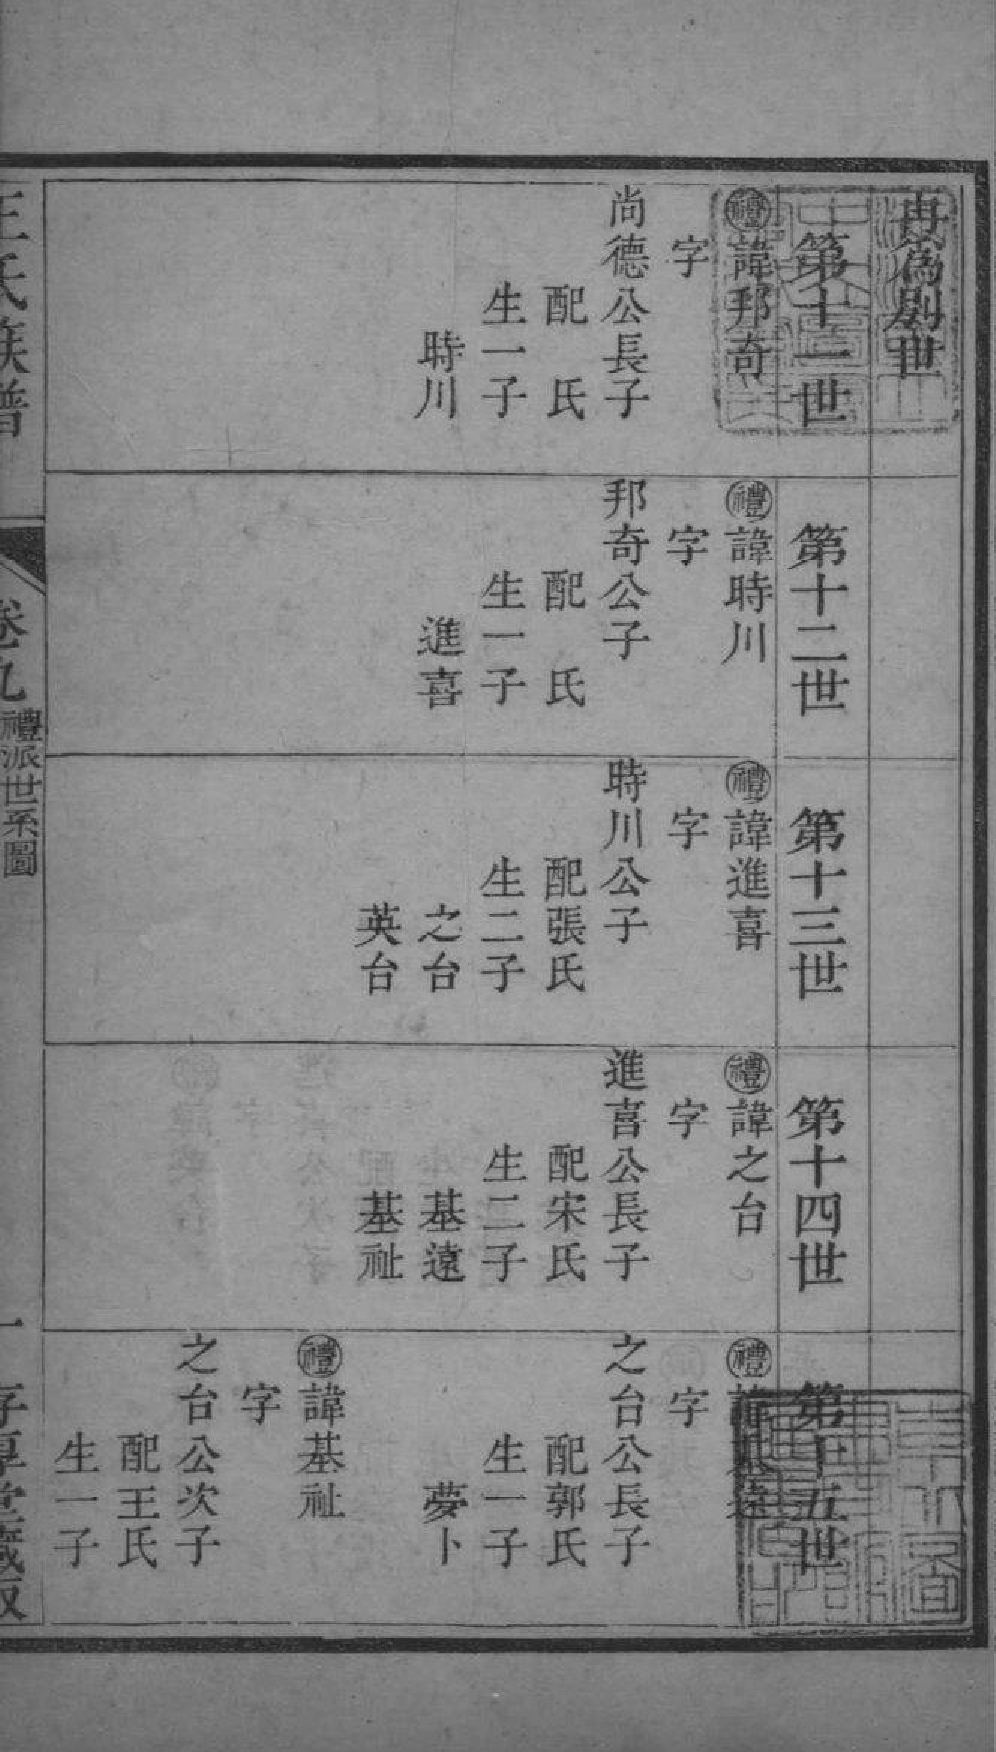 再為別世
第十一世
禮諱邦奇
字
尚德公長子
配　氏
生一子
時川
第十二世
禮諱時川
字
邦奇公子
配　氏
生一子
進喜
第十三世
禮諱進喜
字
時川公子
配張氏
生二子
之台
英台
第十四世
禮諱之台
字
進喜公長子
配宋氏
生二子
基遠
基祉
第十五世
禮諱基遠
字
之台公長子
配郭氏
生一子
夢卜
禮諱基祉
字
之台公次子
配王氏
生一子
王氏族譜
卷九
禮派世系圖
一
存厚堂藏版